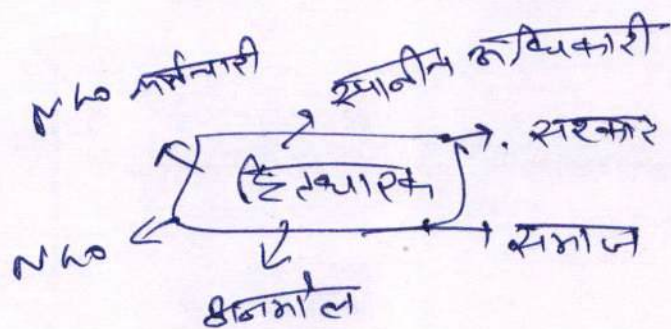 NGO कर्मचारी
स्थानीय अधिकारी
सरकार
हितधारक
समाज
NGO
अनमोल